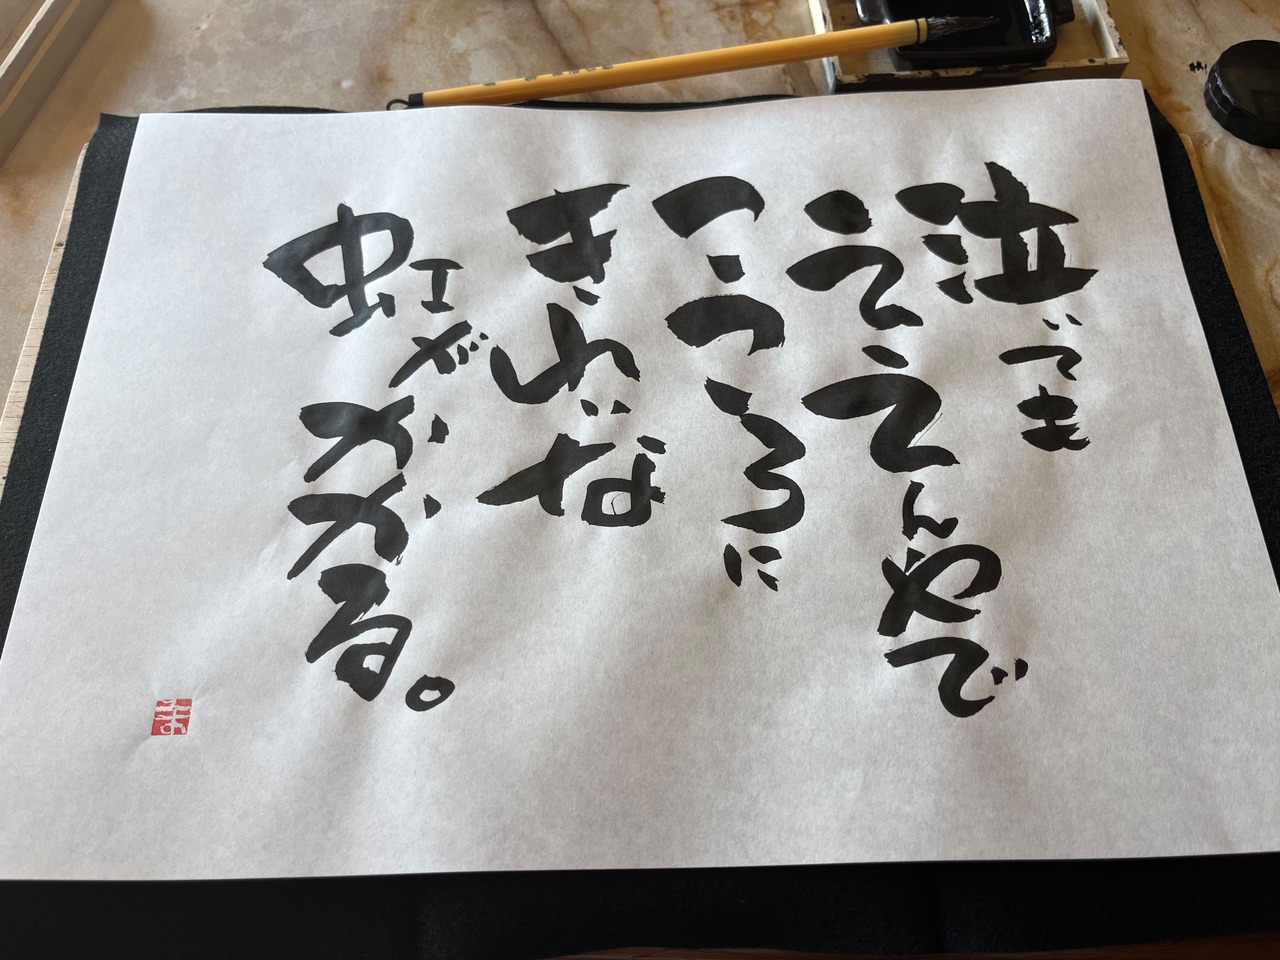 泣いても
ええんやで
こころに
きれいな
虹がかかる。
ま